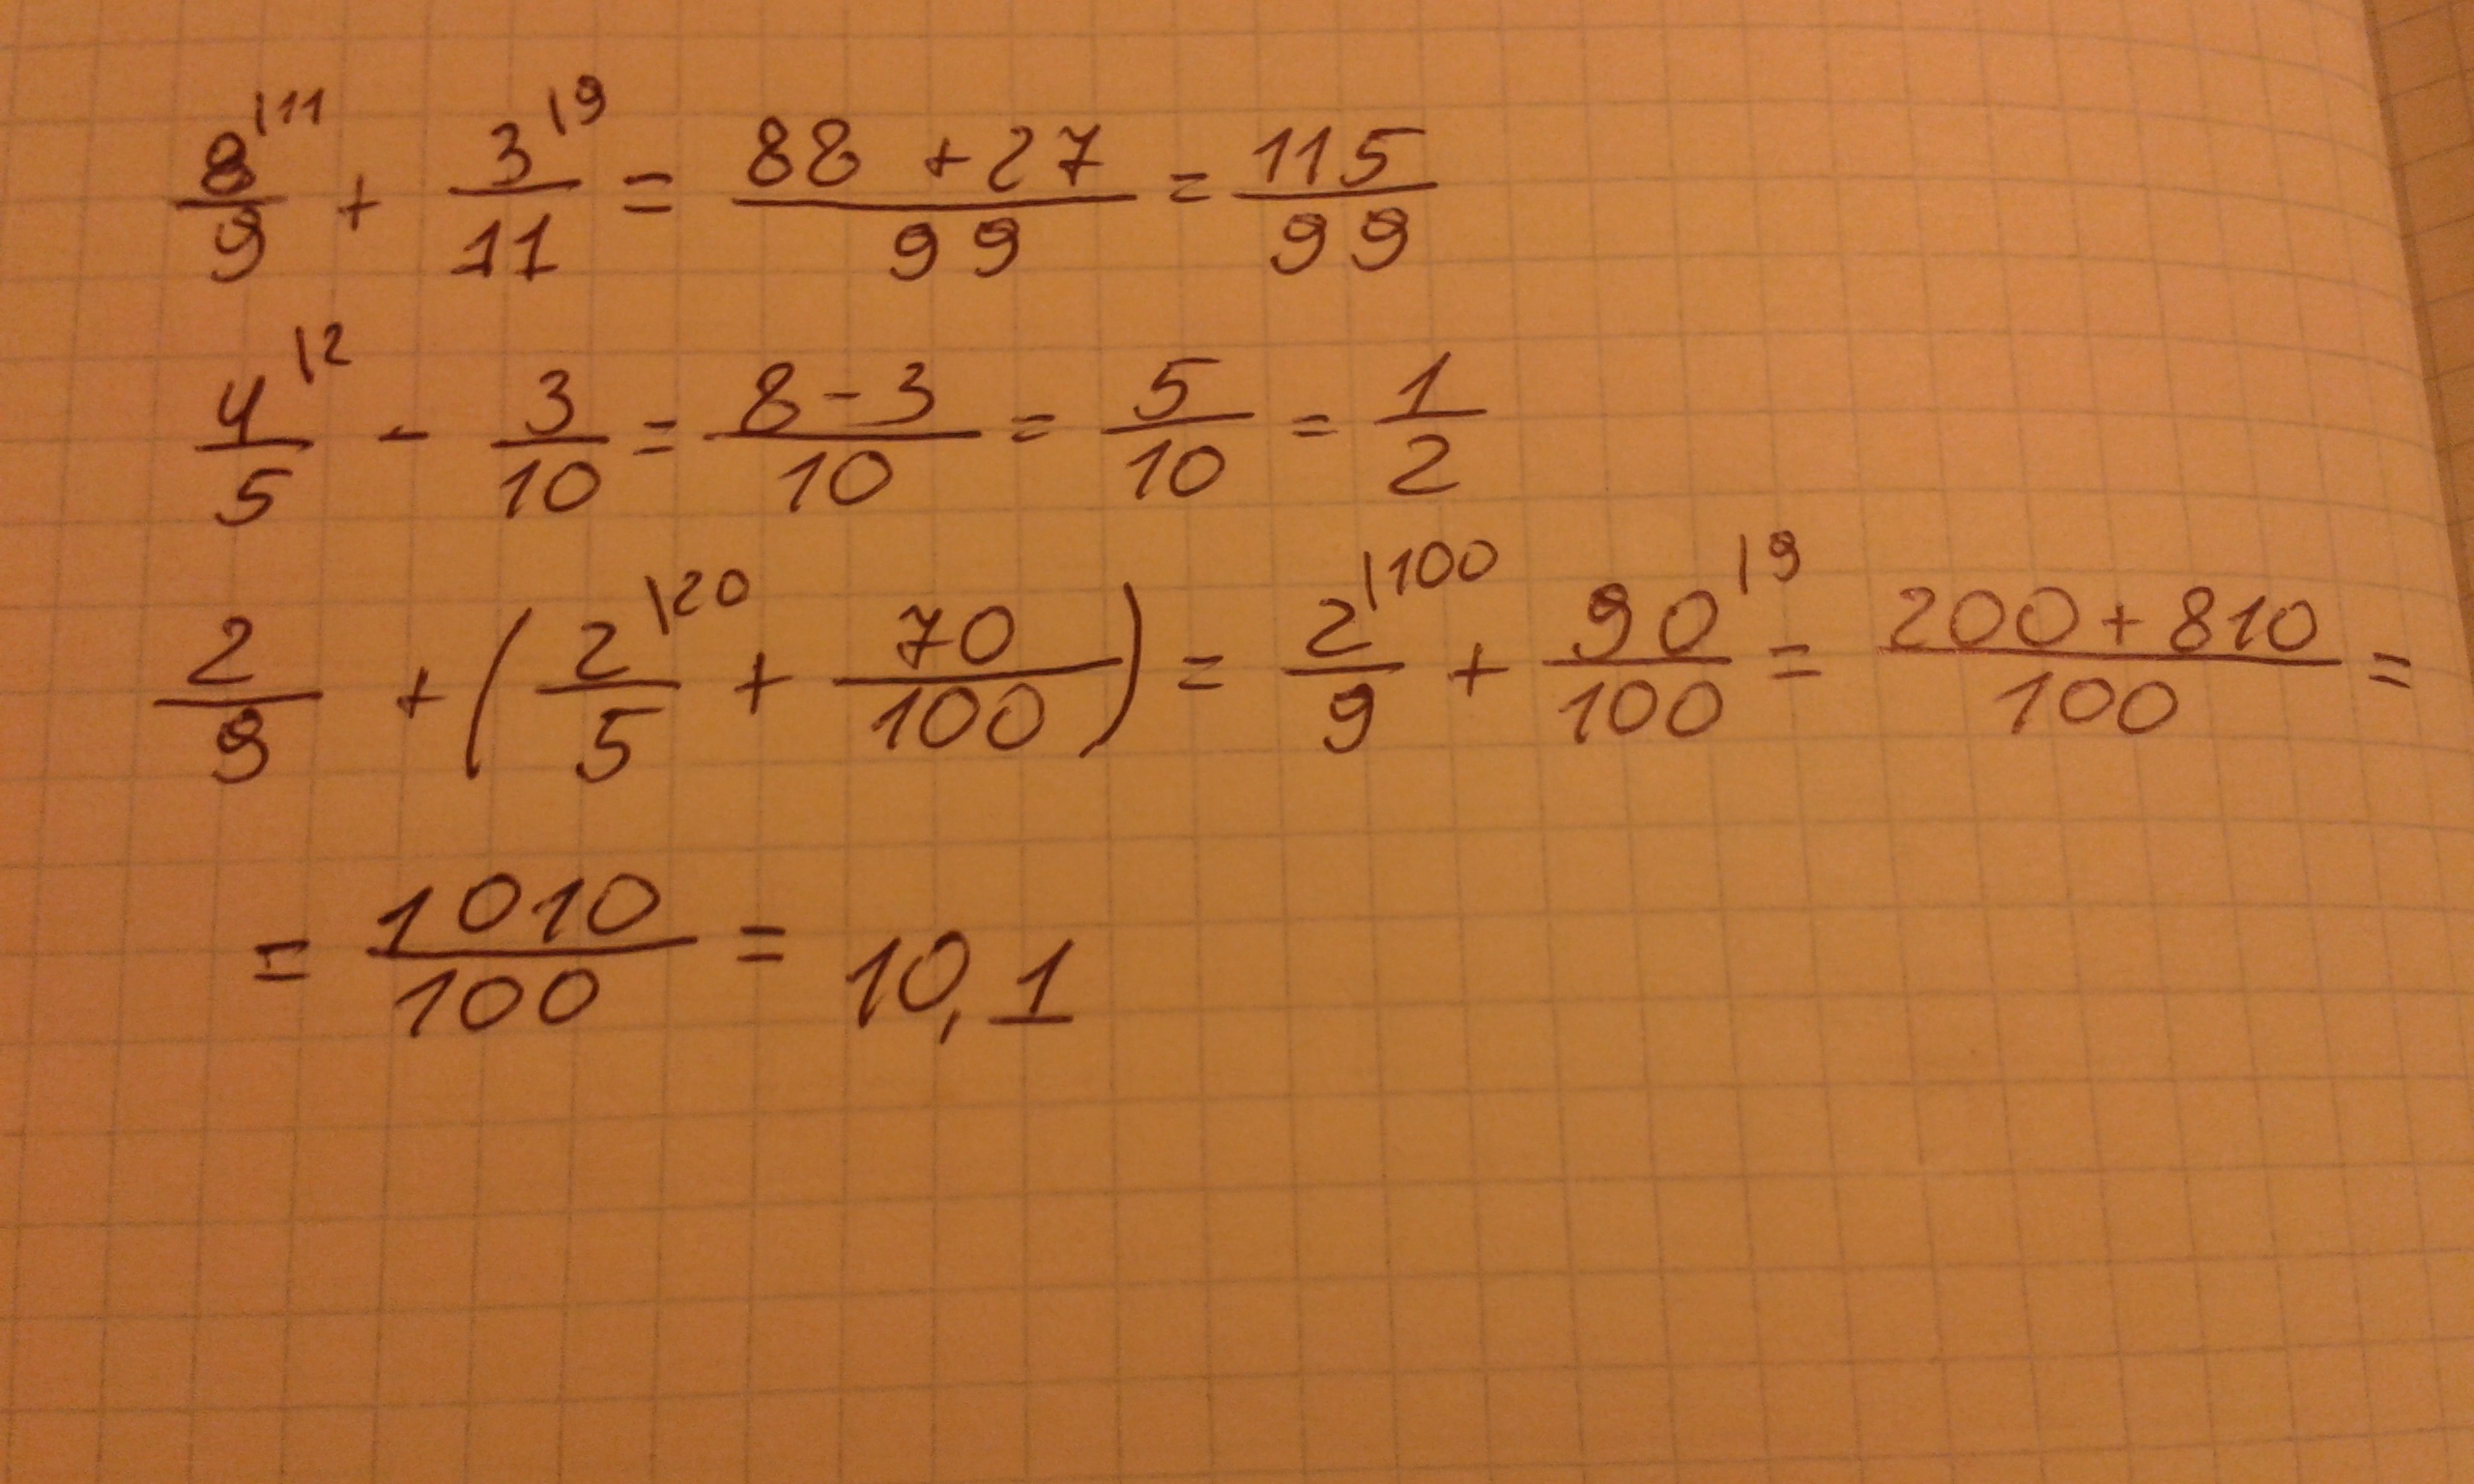 8/9 |11 + 3/11 |9 = (88 + 27)/99 = 115/99
4/5 |2 - 3/10 = (8 - 3)/10 = 5/10 = 1/2
2/9 + (2/5 |20 + 70/100) = 2/9 |100 + 90/100 |9 = (200 + 810)/100 =
= 1010/100 = 10,1